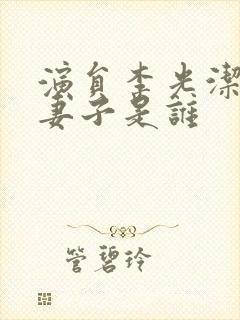 演員李光潔
妻子是誰
管碧玲